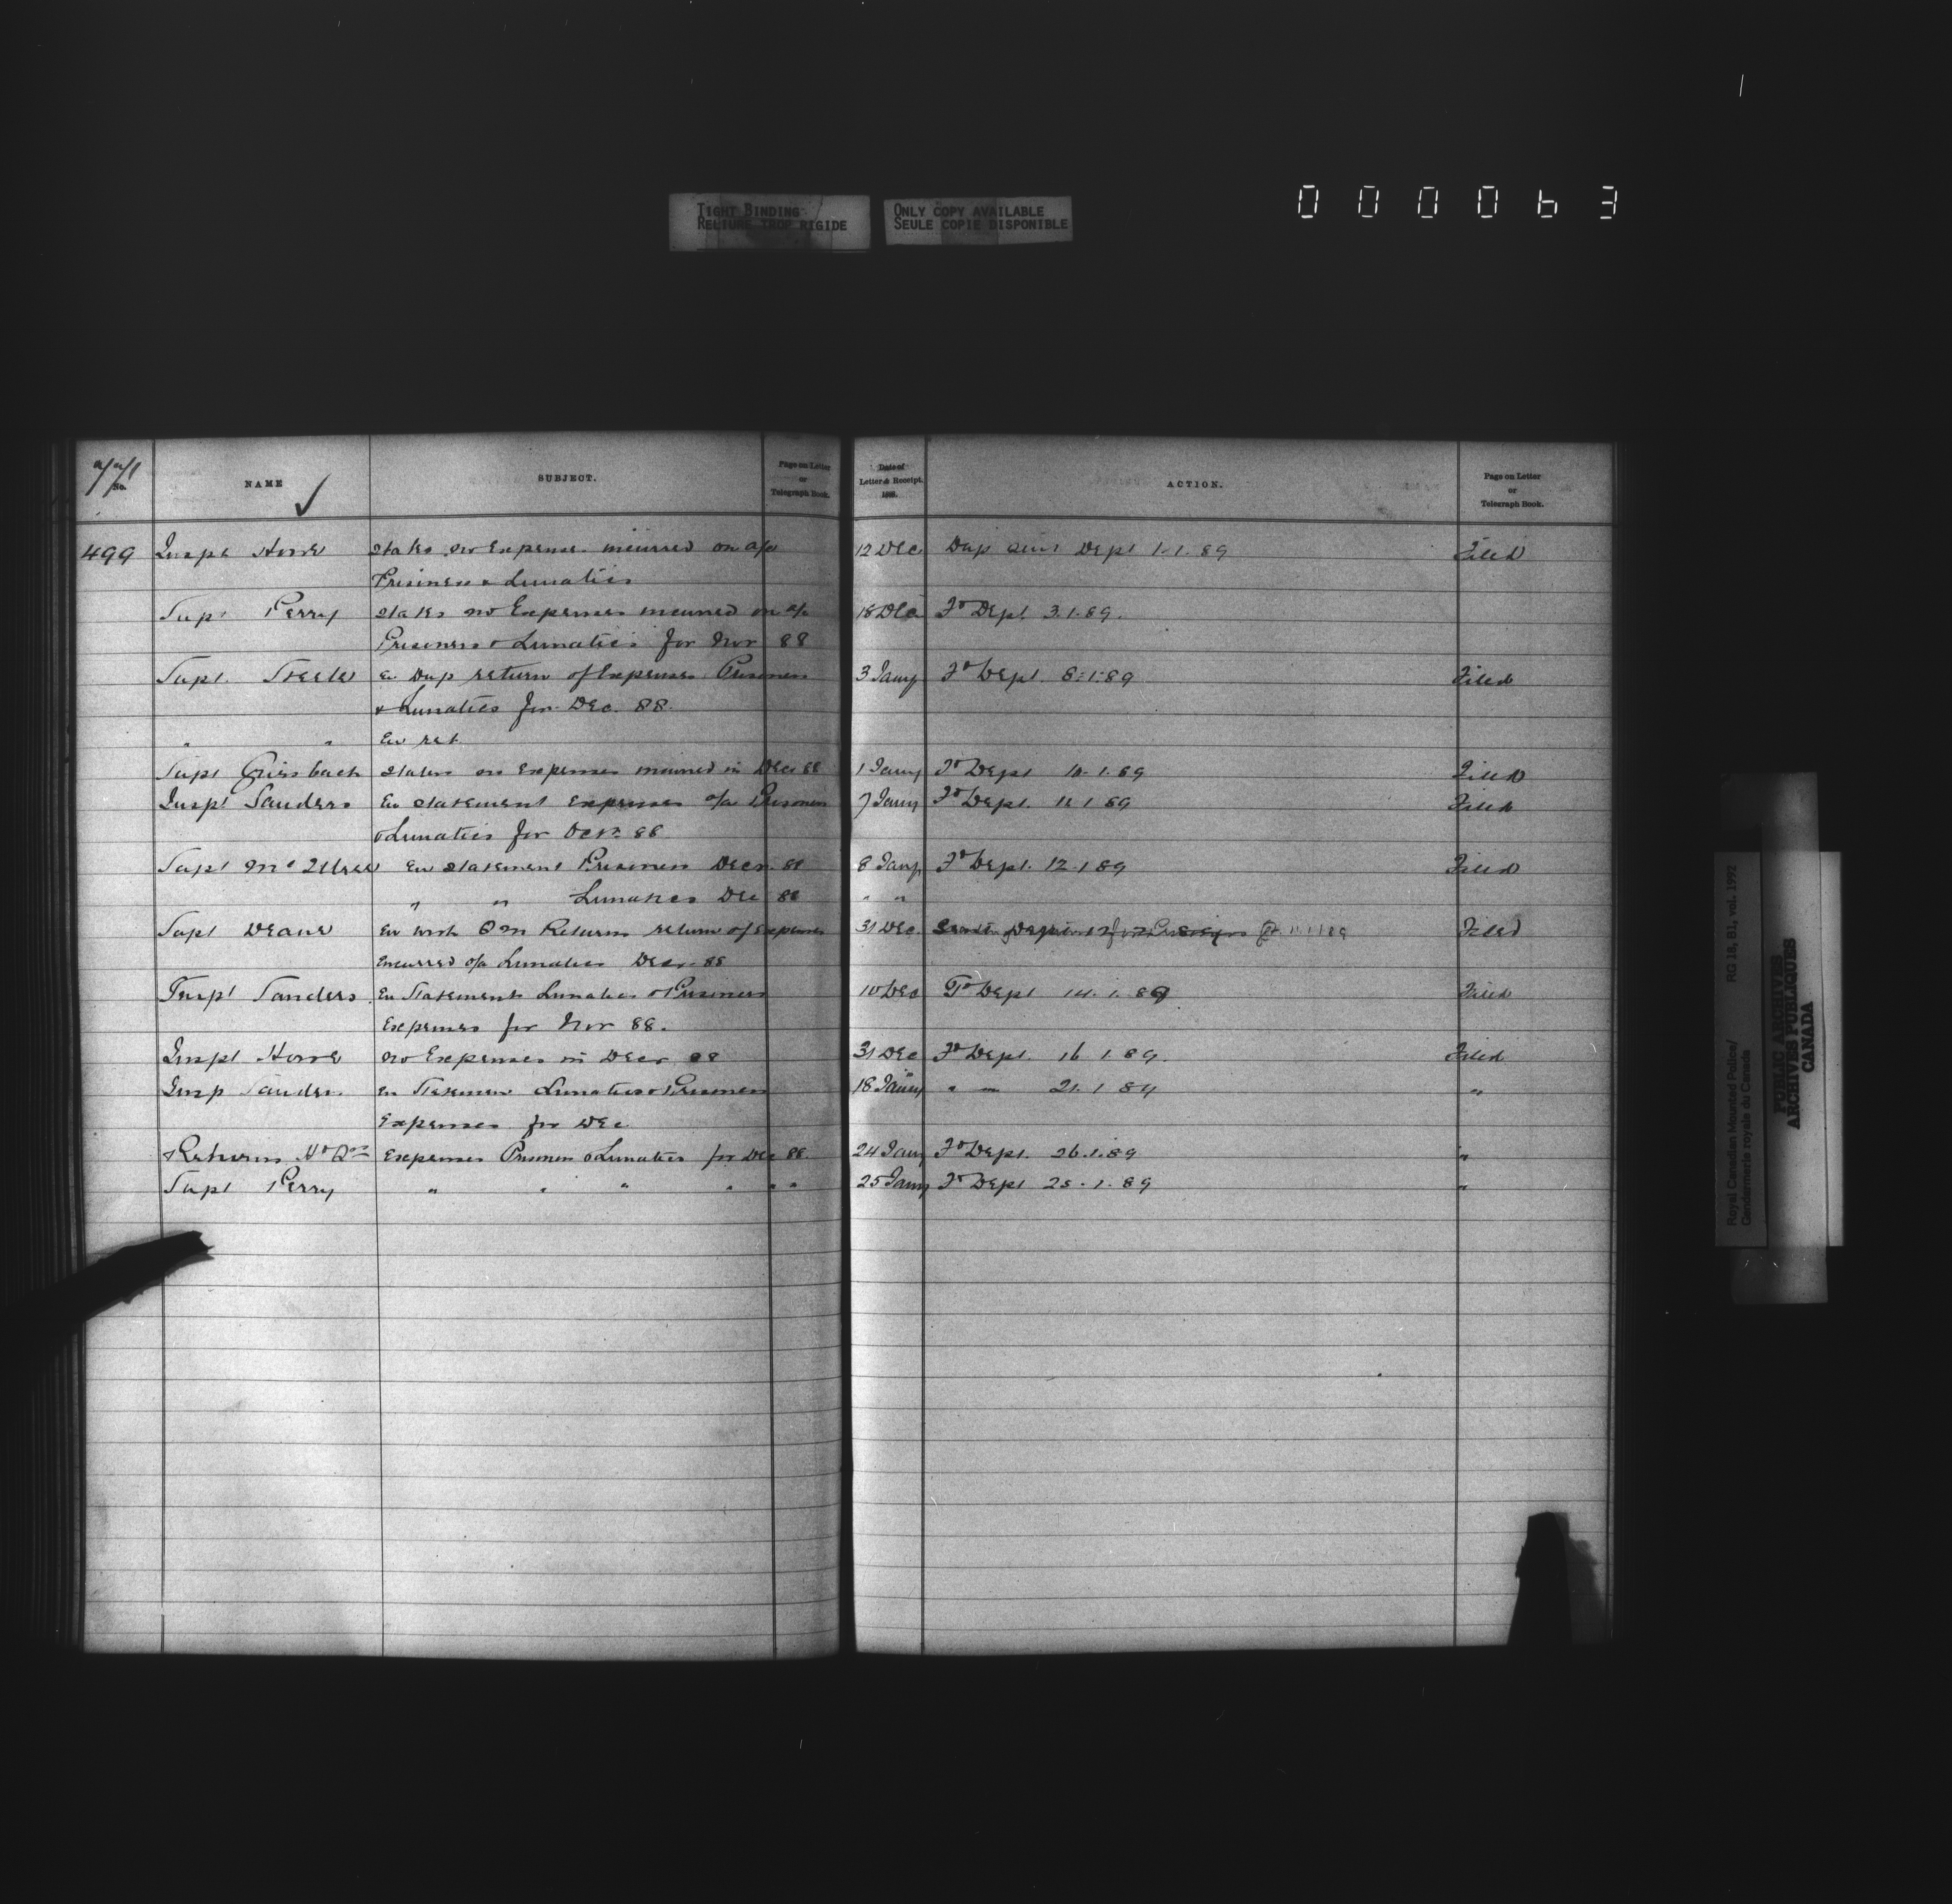 TIGHT BINDING
RELIURE TROP RIGIDE
ONLY COPY AVAILABLE
SEULE COPIE DISPONIBLE
000063
No. NAME SUBJECT. Page on Letter or Telegraph Book. Date of Letter & Receipt. 188 . ACTION. Page on Letter or Telegraph Book.
499 Inspr Howe states no Expenses incurred on a/c 12 Dec Dup Dept 1-1-89 Filed
Prisoners & Lunatics
Supt Perry states no Expenses incurred on a/c 18 Dec To Dept 3.1.89.
Prisoners & Lunatics for Nov 88
Supt. Steele En Dup return of Expenses Prisoners 3 Jany To Dept 8-1-89 Filed
& Lunatics for Dec. 88.
" " En ret
Supt Griesbach states no expenses incurred in Dec 88 1 Jany To Dept 10-1-89 Filed
Inspt Sanders En statement expenses a/c Prisoners 7 Jany To Dept. 11 1 89 Filed
& Lunatics for Decr. 88
Supt McIllree En statement Prisoners Decr. 88 8 Jany To Dept. 12-1 89 Filed
" " Lunatics Dec 88 " "
Supt Deane En with Q M Returns return of Expenses 31 Dec. Filed
incurred a/c Lunatics Decr 88
Inspt Sanders En Statements Lunatics & Prisoners 10 Dec To Dept 14. 1. 89 Filed
Expenses for Nov 88.
Inspt Howe no Expenses in Decr 88 31 Dec To Dept. 16 1 89. Filed
Insp Sanders En Statement Lunatics & Prisoners 18 Jany " " 21. 1 89 "
Expenses for Dec
Returns Hd Qrs Expenses Prisoners & Lunatics for Dec 88. 24 Jany To Dept. 26.1.89 "
Supt Perry " " " " " " 25 Jany To Dept 25-1-89 "
Royal Canadian Mounted Police/ RG 18, B1, vol. 1992
Gendarmerie royale du Canada
PUBLIC ARCHIVES
ARCHIVES PUBLIQUES
CANADA